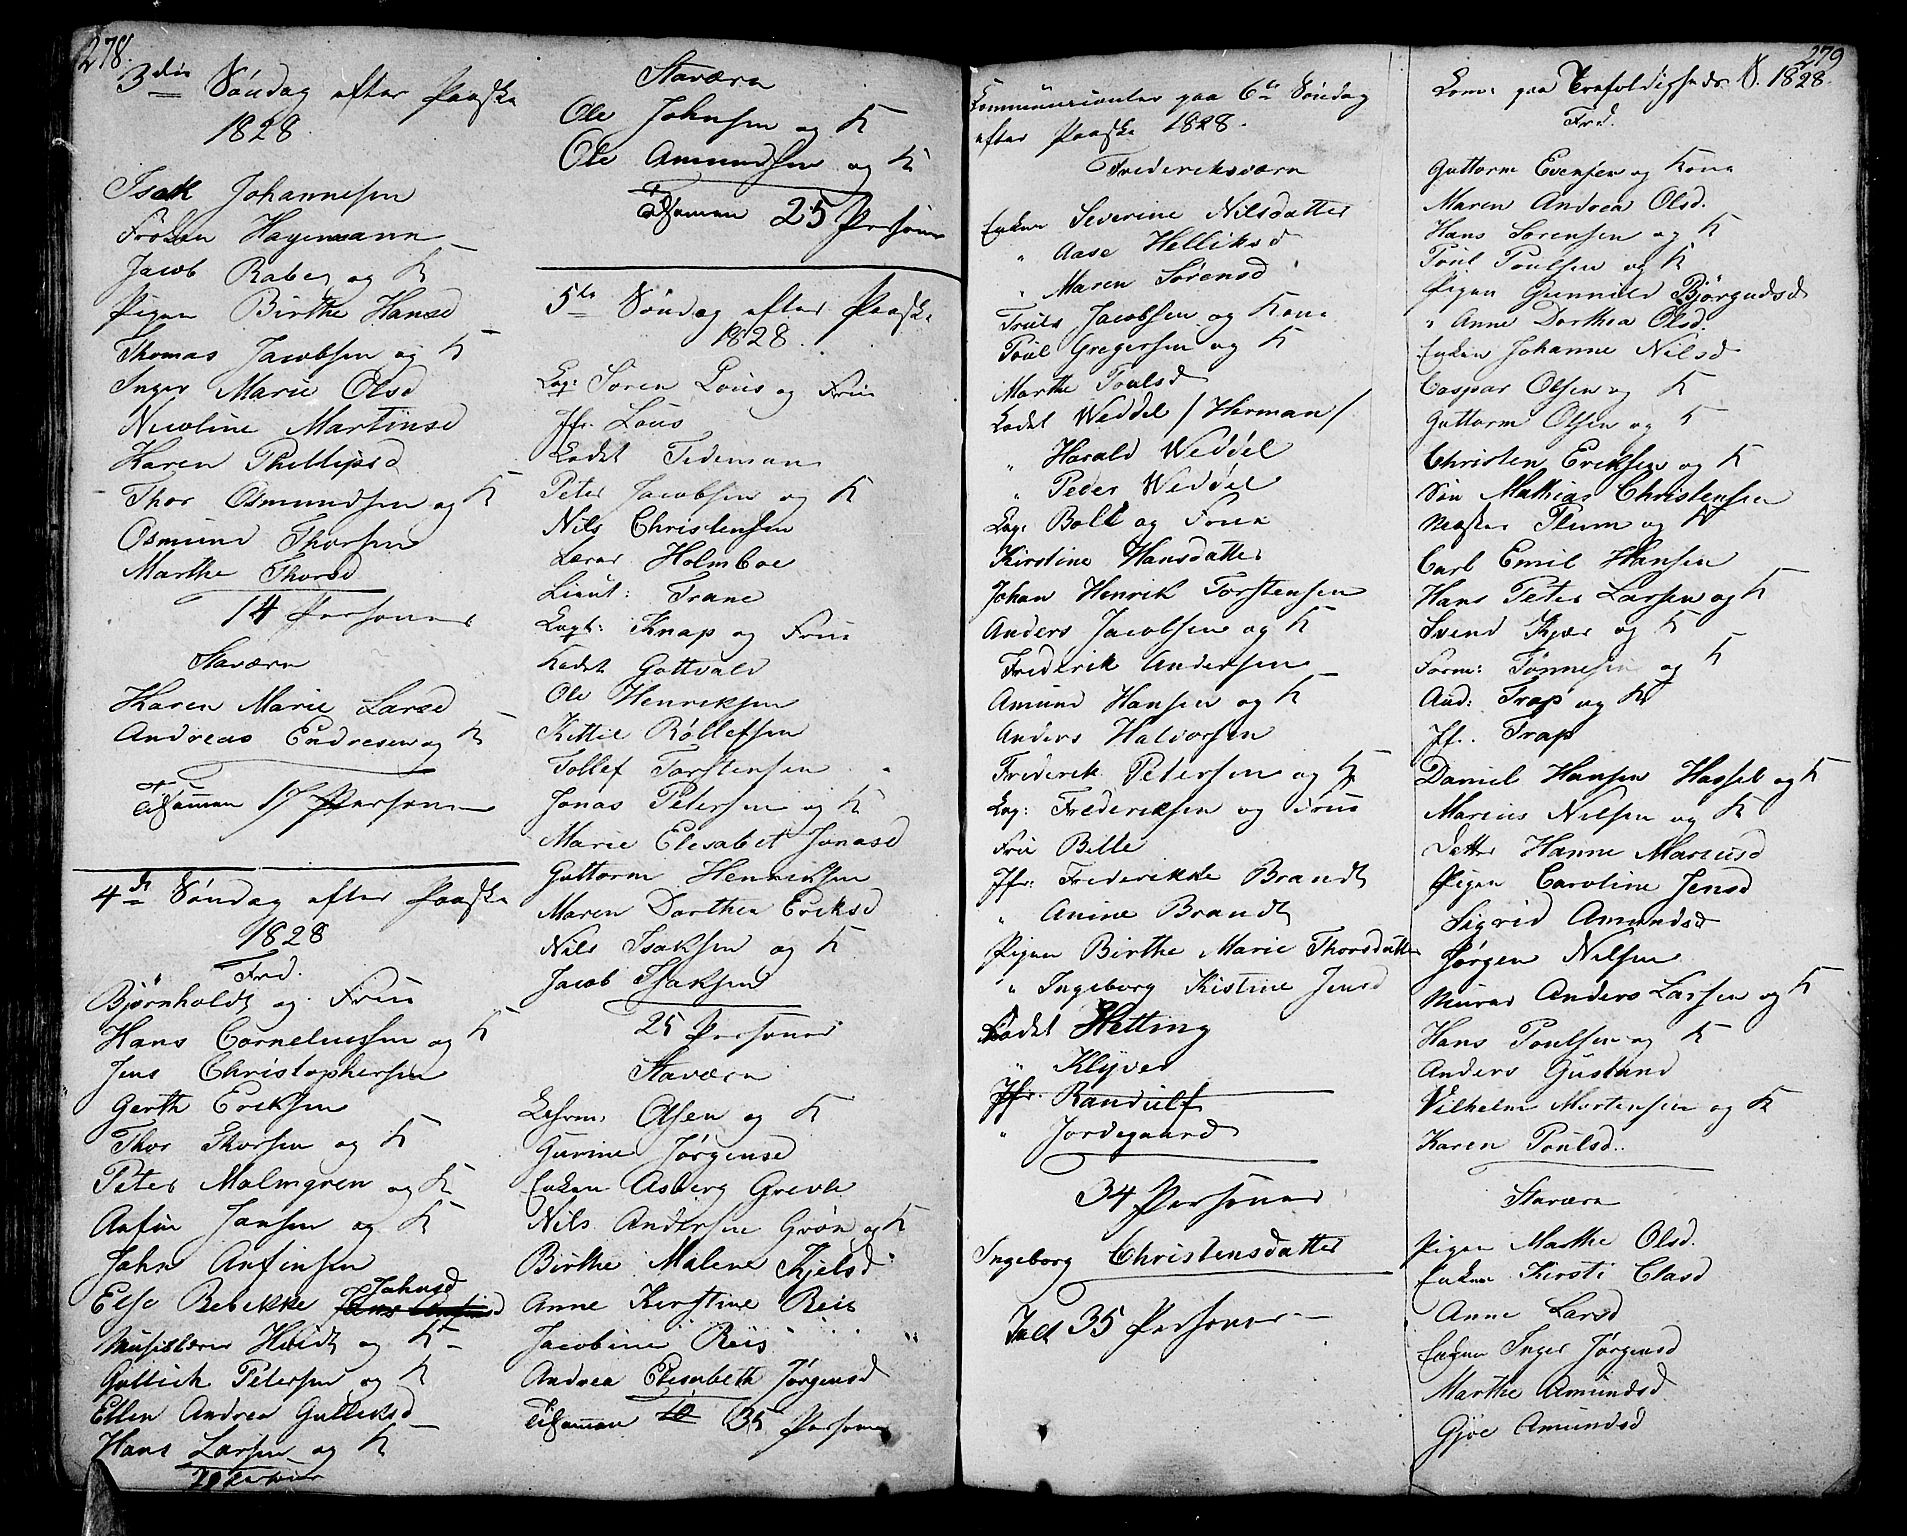 278.
3die Søndag efter Paaske
1828.
Isak Johannesen
Frøken Hagemann
Jacob Rabeg og K
Pigen Birthe Hansd
Thomas Jacobsen og K
Inger Marie Olsd
Nicoline Martinsd
Karen Phillipsd
Thor Osmundsen og K
Osmund Thorsen
Marthe Thorsd
14 Personer
Staværn
Karen Marie Larsd
Andreas Endresen og K
Tilsammen 17 Personer
4de Søndag efter Paaske
1828
Frd.
Bjørnholdt og Frue
Hans Corneliussen og K
Jens Christophersen
Gerth Eriksen
Thor Thorsen og K
Peter Malmgren og K
Anfin Jansen og K
John Anfinsen
Else Bebekke Johnsd
Musiklærer Heidt og K
Gullich Petersen og K
Ellen Andrea Gulliksd
Hans Larsen og K
Staværn
Ole Johnsen og K
Ole Amundsen og K
Tilsammen 25 Personer
5te Søndag efter Paaske
1828.
Cap: Søren Lous og Frue
Jfr. Lous
Cadet Tideman
Peter Jacobsen og K
Nils Christensen
Lærer Holmboe
Lieut: Trane
Capt: Knap og Frue
Kadet Gottvald
Ole Henriksen
Kittil Røllefsen
Tollef Torstensen
Jonas Petersen og K
Marie Elisabet Jonasd
Guttorm Henriksen
Maren Dorthea Eriksd
Nils Isaksen og K
Jacob Isaksen
25 Personer
Staværn
Olsen og K
Gurine Jørgensd
Enken Asberg Greve
Nils Andersen Grøn og K
Birthe Malene Kjelsd
Anne Kirstine Reis
Jacobine Reis
Andrea Elisabeth Jørgensd
Tilsammen 10 35 Personer
Communicanter paa 6te Søndag
efter Paaske 1828.
Frederiksværn
Enken Severine Nilsdatter
" Aase Helliksd
" Maren Sørensd
Truls Jacobsen og Kone
Poul Gregersen og K
Marthe Poulsd
Cadet Weddel /Herman/
" Harald Weddel
" Peder Weddel
Cap: Boll og Frue
Kirstine Hansdatter
Johan Henrik Torstensen
Anders Jacobsen og K
Frederik Andersen
Amund Hansen og K
Anders Halvorsen
Frederik Petersen og K
Cap: Frederiksen og Frue
Fru Bille
Jfr: Frederikke Brandt
" Anine Brandt
Pigen Birthe Marie Thorsdatter
" Ingeborg Kistine Jensd
Cadet Hetting
" Klyver
Jfr. Randulf
" Jordegaard
34 Personer
Ingeborg Christensdatter
Ialt 35 Personer
279
Com: paa Trefoldigheds S. 1828.
Frd.
Guttorm Evensen og Kone
Maren Andrea Olsd.
Hans Sørensen og K
Poul Poulsen og K
Pigen Gunnild Bjørgudsd
" Anne Dorthea Olsd.
Enken Johanne Nilsd
Caspar Olsen og K
Guttorm Olsen og K
Christen Eriksen og K
Søn Mathias Christensen
Mester Plum og K
Carl Emil Hansen
Hans Peter Larsen og K
Svend Kjær og K
Form: Tønnesen og K
Aud: Trap og K
Jfr. Trap
Daniel Hansen Hassel og K
Marcus Nilsen og K
Datter Hanne Marcusd
Pigen Caroline Jensd
Sigrid Amundsd
Jørgen Nilsen
Murer Anders Larsen og K
Hans Poulsen og K
Anders Gustand
Vilhelm Mortensen og K
Karen Poulsd.
Staværn
Pigen Marthe Olsd.
Enken Kirsti Clasd
Anne Larsd
Enken Inger Jørgensd
Marthe Amundsd
Gjøe Amundsd